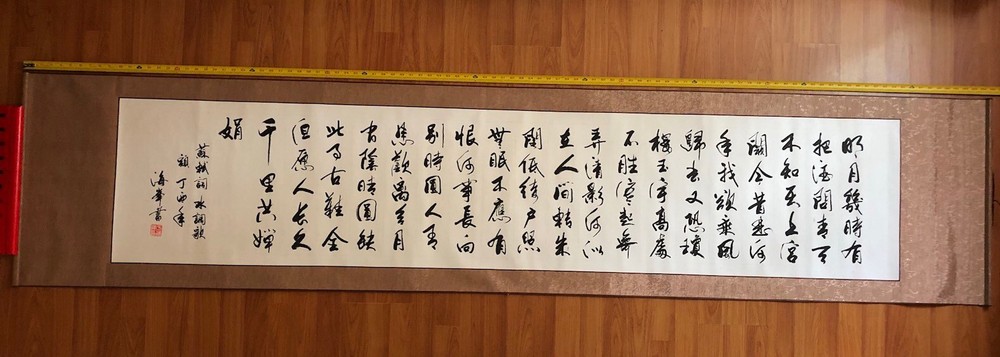 明月幾時有
把酒問青天
不知天上宮
闕今昔是何
年我欲乘風
歸去又恐瓊
樓玉宇高處
不胜寒起舞
弄清影何似
在人間轉朱
閣低綺戶照
無眠不應有
恨何事長向
別時圓人有
悲歡離合月
有陰晴圓缺
此事古難全
但愿人長久
千里共嬋
娟
蘇軾詞水調歌
頭丁酉年
海峯書